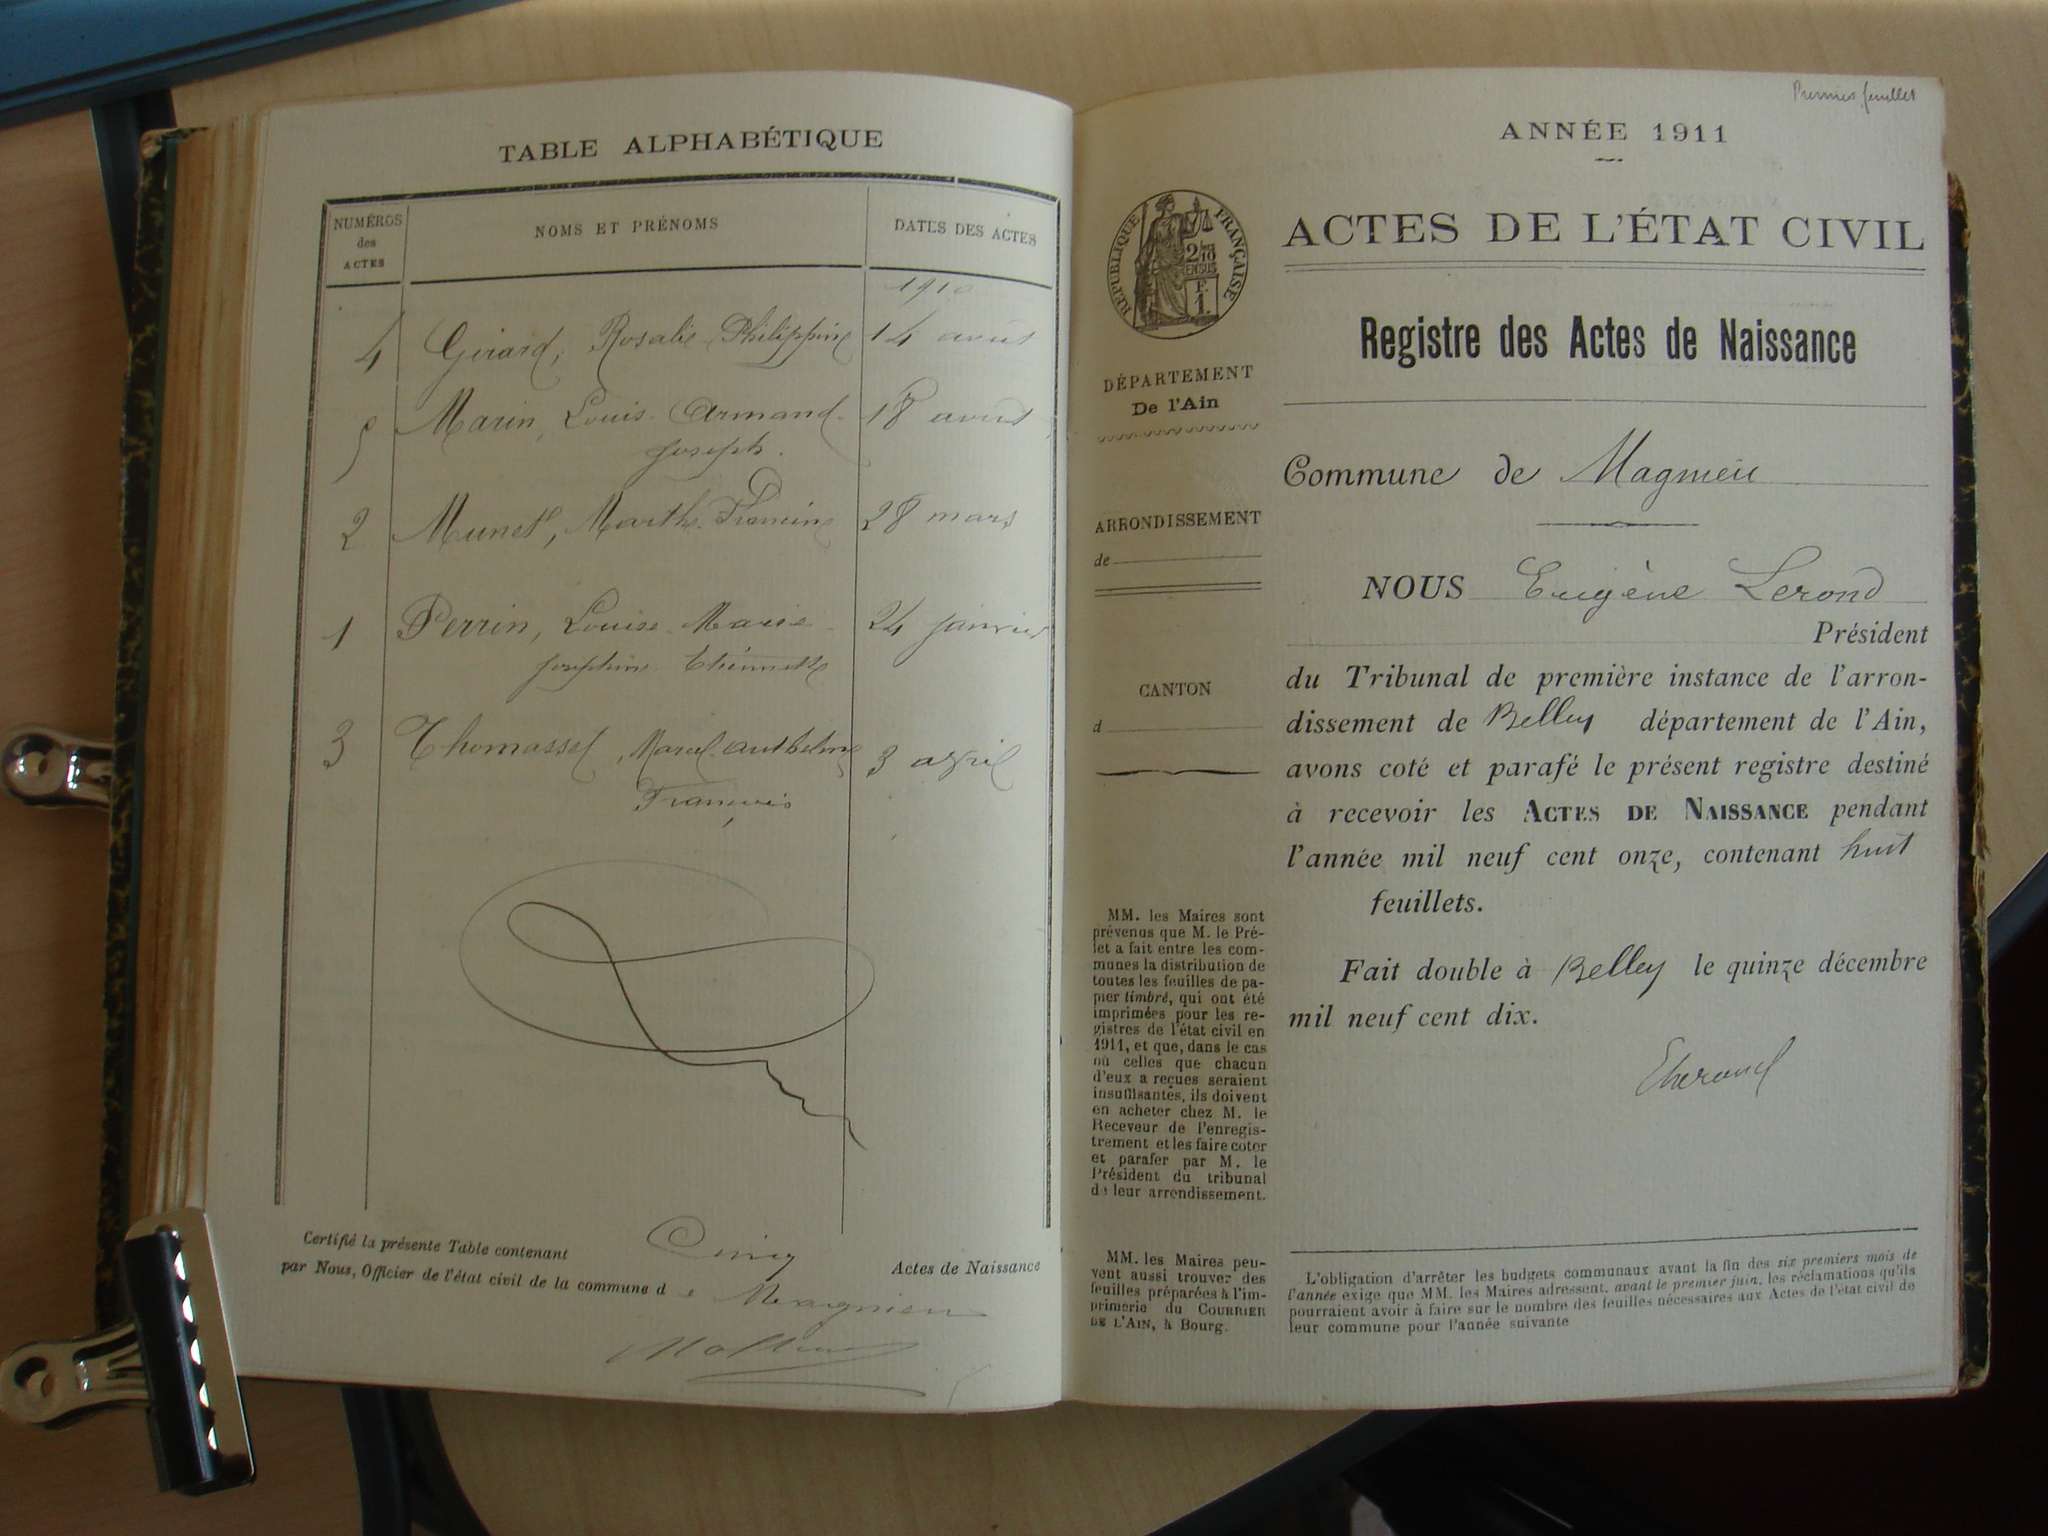 TABLE ALPHABÉTIQUE
NUMÉROS
des
ACTES
NOMS ET PRÉNOMS
DATES DES ACTES
1910
4 Girard, Rosalie Philippine 14 août
5 Marin, Louis Armand
Joseph. 18 août
2 Munet, Marthe Francine 28 mars
1 Perrin, Louise Marie
Joséphine Etiennette 24 janvier
3 Thomasset, Marcel Anthelme
François 3 avril
Certifié la présente Table contenant Cinq Actes de Naissance
par Nous, Officier de l'état civil de la commune de Magnieu
Premier feuillet
ANNÉE 1911
RÉPUBLIQUE FRANÇAISE
2/10
EN SUS
F.
1.
DÉPARTEMENT
De l'Ain
ARRONDISSEMENT
de
CANTON
d
MM. les Maires sont
prévenus que M. le Pré-
fet a fait entre les com-
munes la distribution de
toutes les feuilles de pa-
pier timbré, qui ont été
imprimées pour les re-
gistres de l'état civil en
1911, et que, dans le cas
où celles que chacun
d'eux a reçues seraient
insuffisantes, ils doivent
en acheter chez M. le
Receveur de l'enregis-
trement et les faire coter
et parafer par M. le
Président du tribunal
de leur arrondissement.
MM. les Maires peu-
vent aussi trouver des
feuilles préparées à l'im-
primerie du COURRIER
DE L'AIN, à Bourg.
ACTES DE L'ÉTAT CIVIL
Registre des Actes de Naissance
Commune de Magnieu
NOUS Eugène Lerond
Président
du Tribunal de première instance de l'arron-
dissement de Belley département de l'Ain,
avons coté et parafé le présent registre destiné
à recevoir les ACTES DE NAISSANCE pendant
l'année mil neuf cent onze, contenant huit
feuillets.
Fait double à Belley le quinze décembre
mil neuf cent dix.
L'obligation d'arrêter les budgets communaux avant la fin des six premiers mois de
l'année exige que MM. les Maires adressent, avant le premier juin, les réclamations qu'ils
pourraient avoir à faire sur le nombre des feuilles nécessaires aux Actes de l'état civil de
leur commune pour l'année suivante